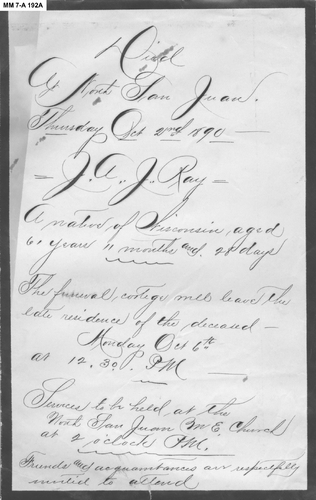 MM 7-A 192A
Died
At North San Juan.
Thursday Oct 2nd 1890 —
= J. A. J. Ray =
A native of Wisconsin, aged
years 11 months and 28 days
The funeral cortege will leave the
late residence of the deceased —
Monday Oct 6th
at 12.30. P.M
Services to be held at the
North San Juan M E. Church
at 2 o'clock P.M.
Friends and acquaintances are respectfully
invited to attend